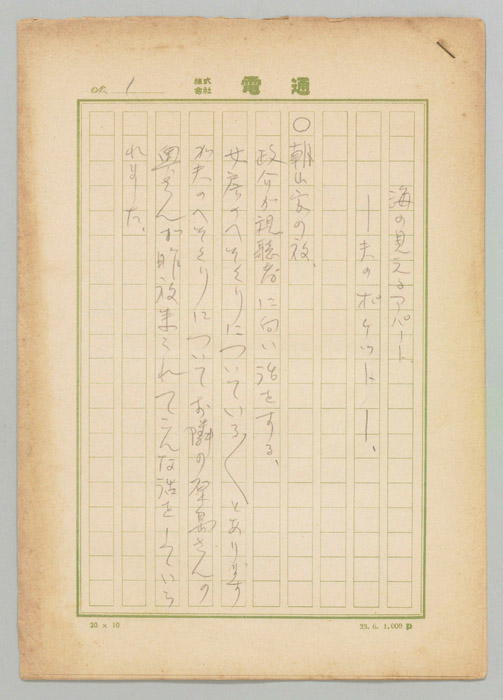 No. 1
株式会社 電通
海の見えるアパート
―夫のポケット―、
○朝山家の夜、
政介が視聴者に向い話をする、
女房のへそくりについている
とあります
が夫のへそくりについてお隣の原島さんの
奥さんが昨夜まくれてこんな話をしていら
れました、
20 × 10
23. 6. 1,000